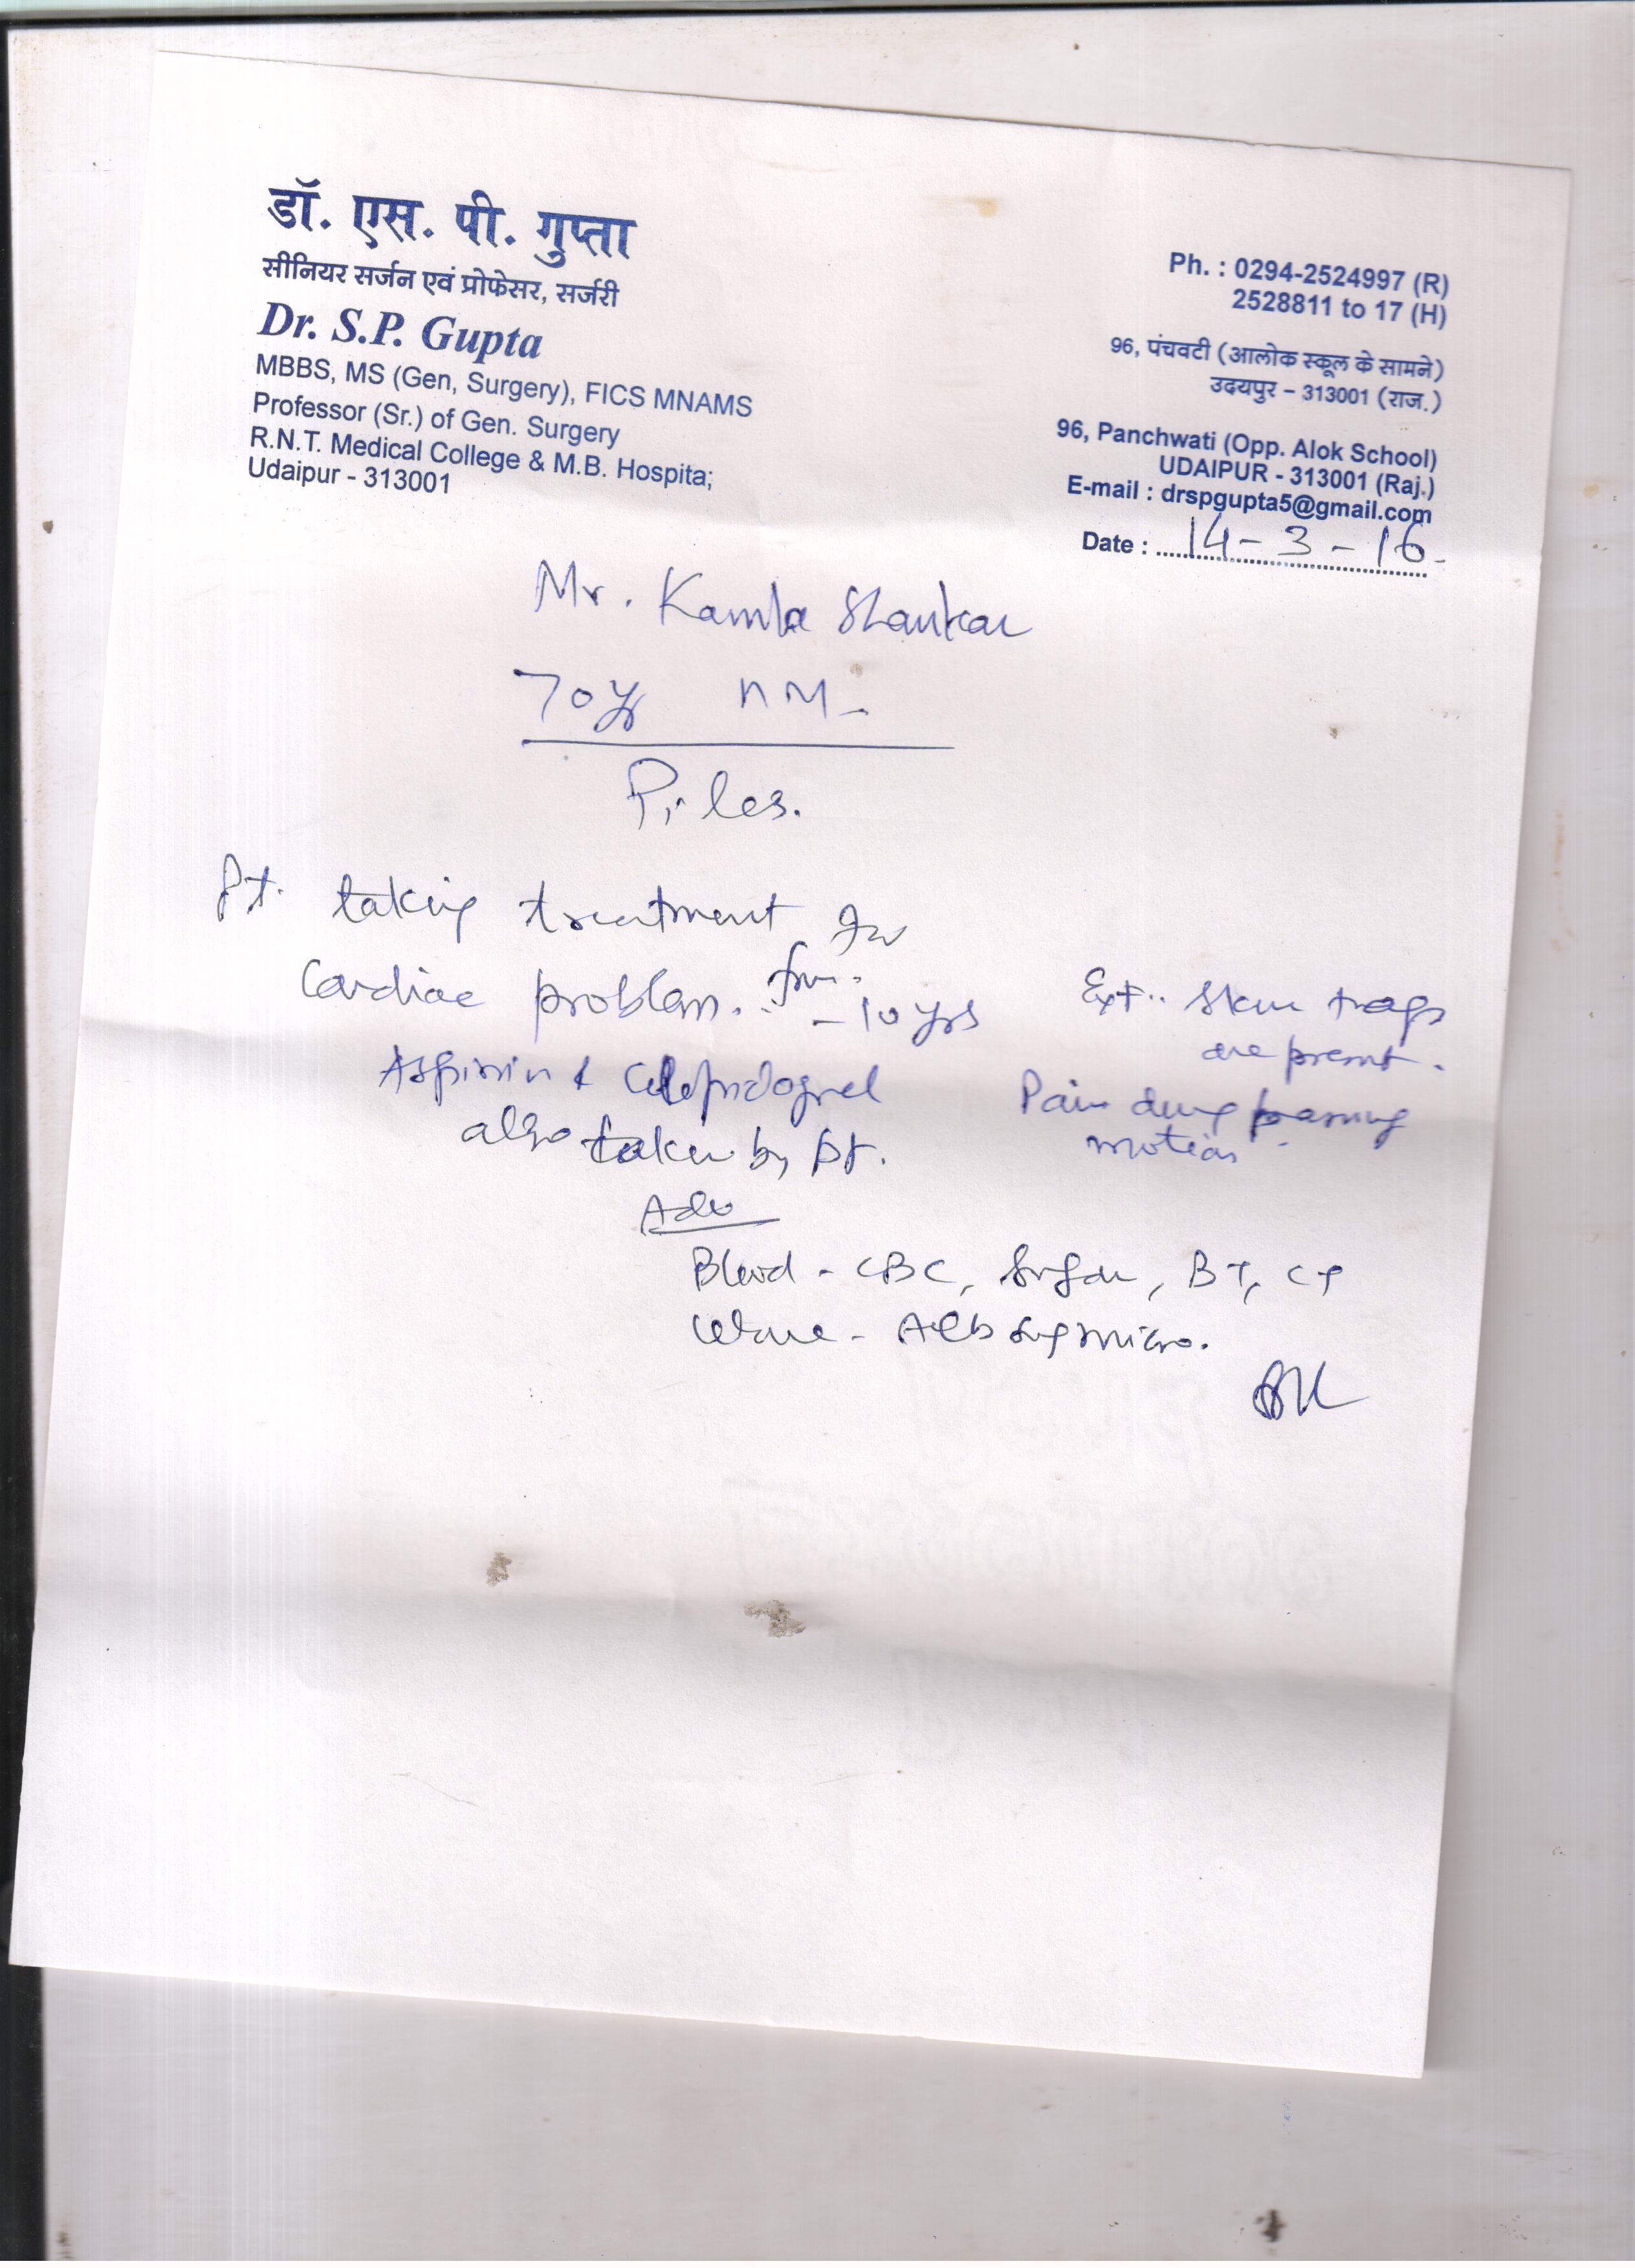 डॉ. एस. पी. गुप्ता
सीनियर सर्जन एवं प्रोफेसर, सर्जरी
Dr. S.P. Gupta
MBBS, MS (Gen, Surgery), FICS MNAMS
Professor (Sr.) of Gen. Surgery
R.N.T. Medical College & M.B. Hospita;
Udaipur - 313001
Ph. : 0294-2524997 (R)
2528811 to 17 (H)
96, पंचवटी (आलोक स्कूल के सामने)
उदयपुर – 313001 (राज.)
96, Panchwati (Opp. Alok School)
UDAIPUR - 313001 (Raj.)
E-mail : drspgupta5@gmail.com
Date : 14-3-16
Mr. Kamla Shankar
70yr
Piles.
Pt. taking treatment for
Cardiac problem. from
- 10 yrs
Aspirin & Clopidogrel
also taken by pt.
Ext. Skin tags
are present.
Pain during passing
motion
Adv
Blood - CBC, Sugar, BT, CT
Urine - Alb Sug micro.